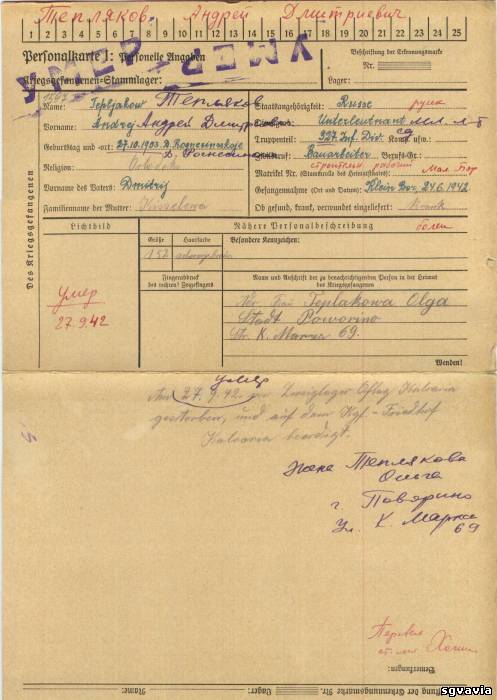 Тепляков Андрей Дмитриевич
1 2 3 4 5 6 7 8 9 10 11 12 13 14 15 16 17 18 19 20 21 22 23 24 25
УМЕР УМЕР
Personalkarte I: Personelle Angaben
Kriegsgefangenen-Stammlager:
Beschriftung der Erkennungsmarke
Nr.
Lager:
Des Kriegsgefangenen
Name: Tepljakow Тепляков
Vorname: Andrej Андрей Дмитриевич
Geburtstag und -ort: 27.10.1903
Religion: Orthodox
Vorname des Vaters: Dmitrij
Familienname der Mutter:
Staatsangehörigkeit: Russe русск
Dienstgrad: Unterleutnant мл. л-т
Truppenteil: 327. Inf. Div. Kom. usw.:
Bauarbeiter Berufs-Gr.:
строительн. рабочий
Matrikel Nr. (Stammrolle des Heimatstaates): Мал. Бор
Gefangennahme (Ort und Datum): Klein Bor, 24.6.1942
Ob gesund, krank, verwundet eingeliefert: Krank
болен
Lichtbild
Nähere Personalbeschreibung
Größe
Haarfarbe
Besondere Kennzeichen:
Fingerabdruck
des rechten! Zeigefingers
Name und Anschrift der zu benachrichtigenden Person in der Heimat
des Kriegsgefangenen
Frau Teplakowa Olga
Stadt Poworino
Str. K. Marxa 69.
умер
27.9.42
Wenden!
умер
Am 27.9.42. im Zweiglager Oflag Kalvaria
gestorben, und auf dem Kgf.-Friedhof
Kalvaria beerdigt.
Жена Теплякова
Ольга
г. Поварино
ул. К. Маркса
69
Перевел
Bemerkungen:
Beschriftung der Erkennungsmarke Nr.
Lager:
Name:
sgvavia